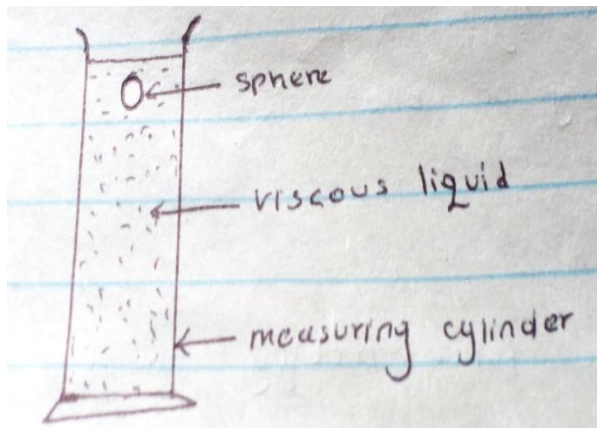 sphere
viscous liquid
measuring cylinder